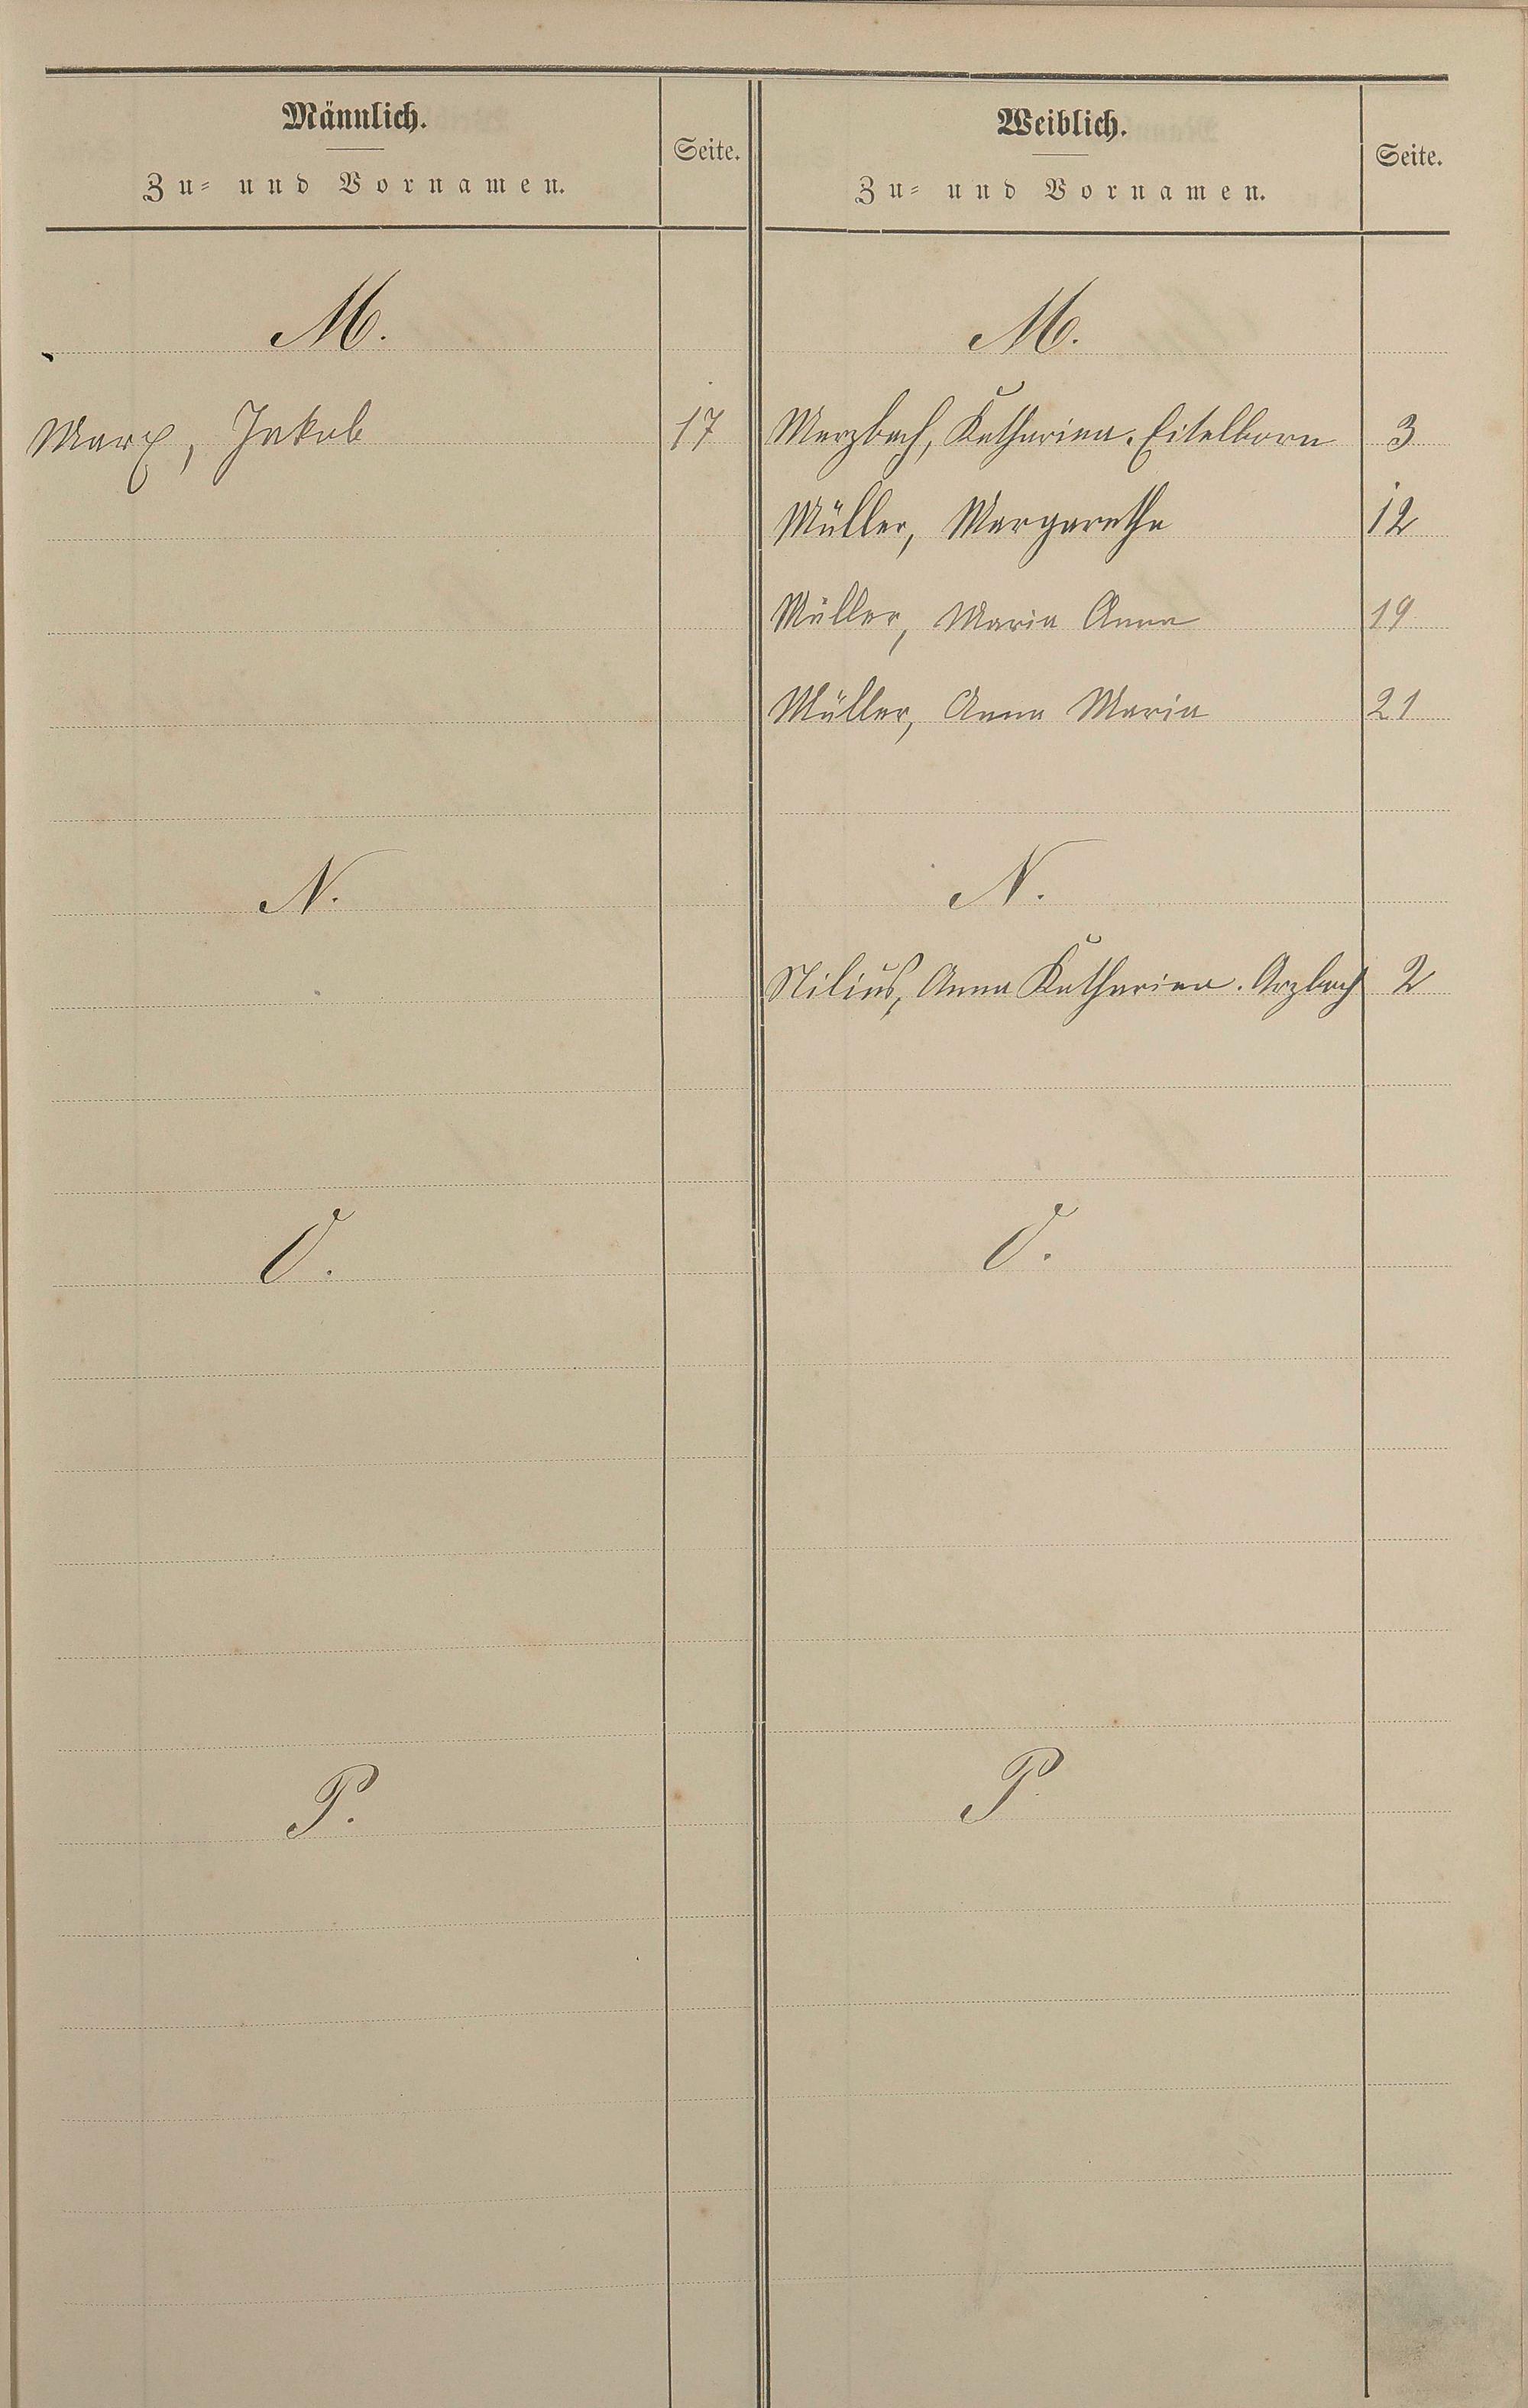 Männlich.
Zu- und Vornamen.
Seite.
Weiblich.
Zu- und Vornamen.
Seite.
M.
M.
Marx, Jakob 17
Merzbach, Katharina. Eitelborn 3
Müller, Margaretha 12
Müller, Maria Anna 19
Müller, Anna Maria 21
N.
N.
Nilius, Anna Katharina. Arzbach 2
O.
O.
P.
P.